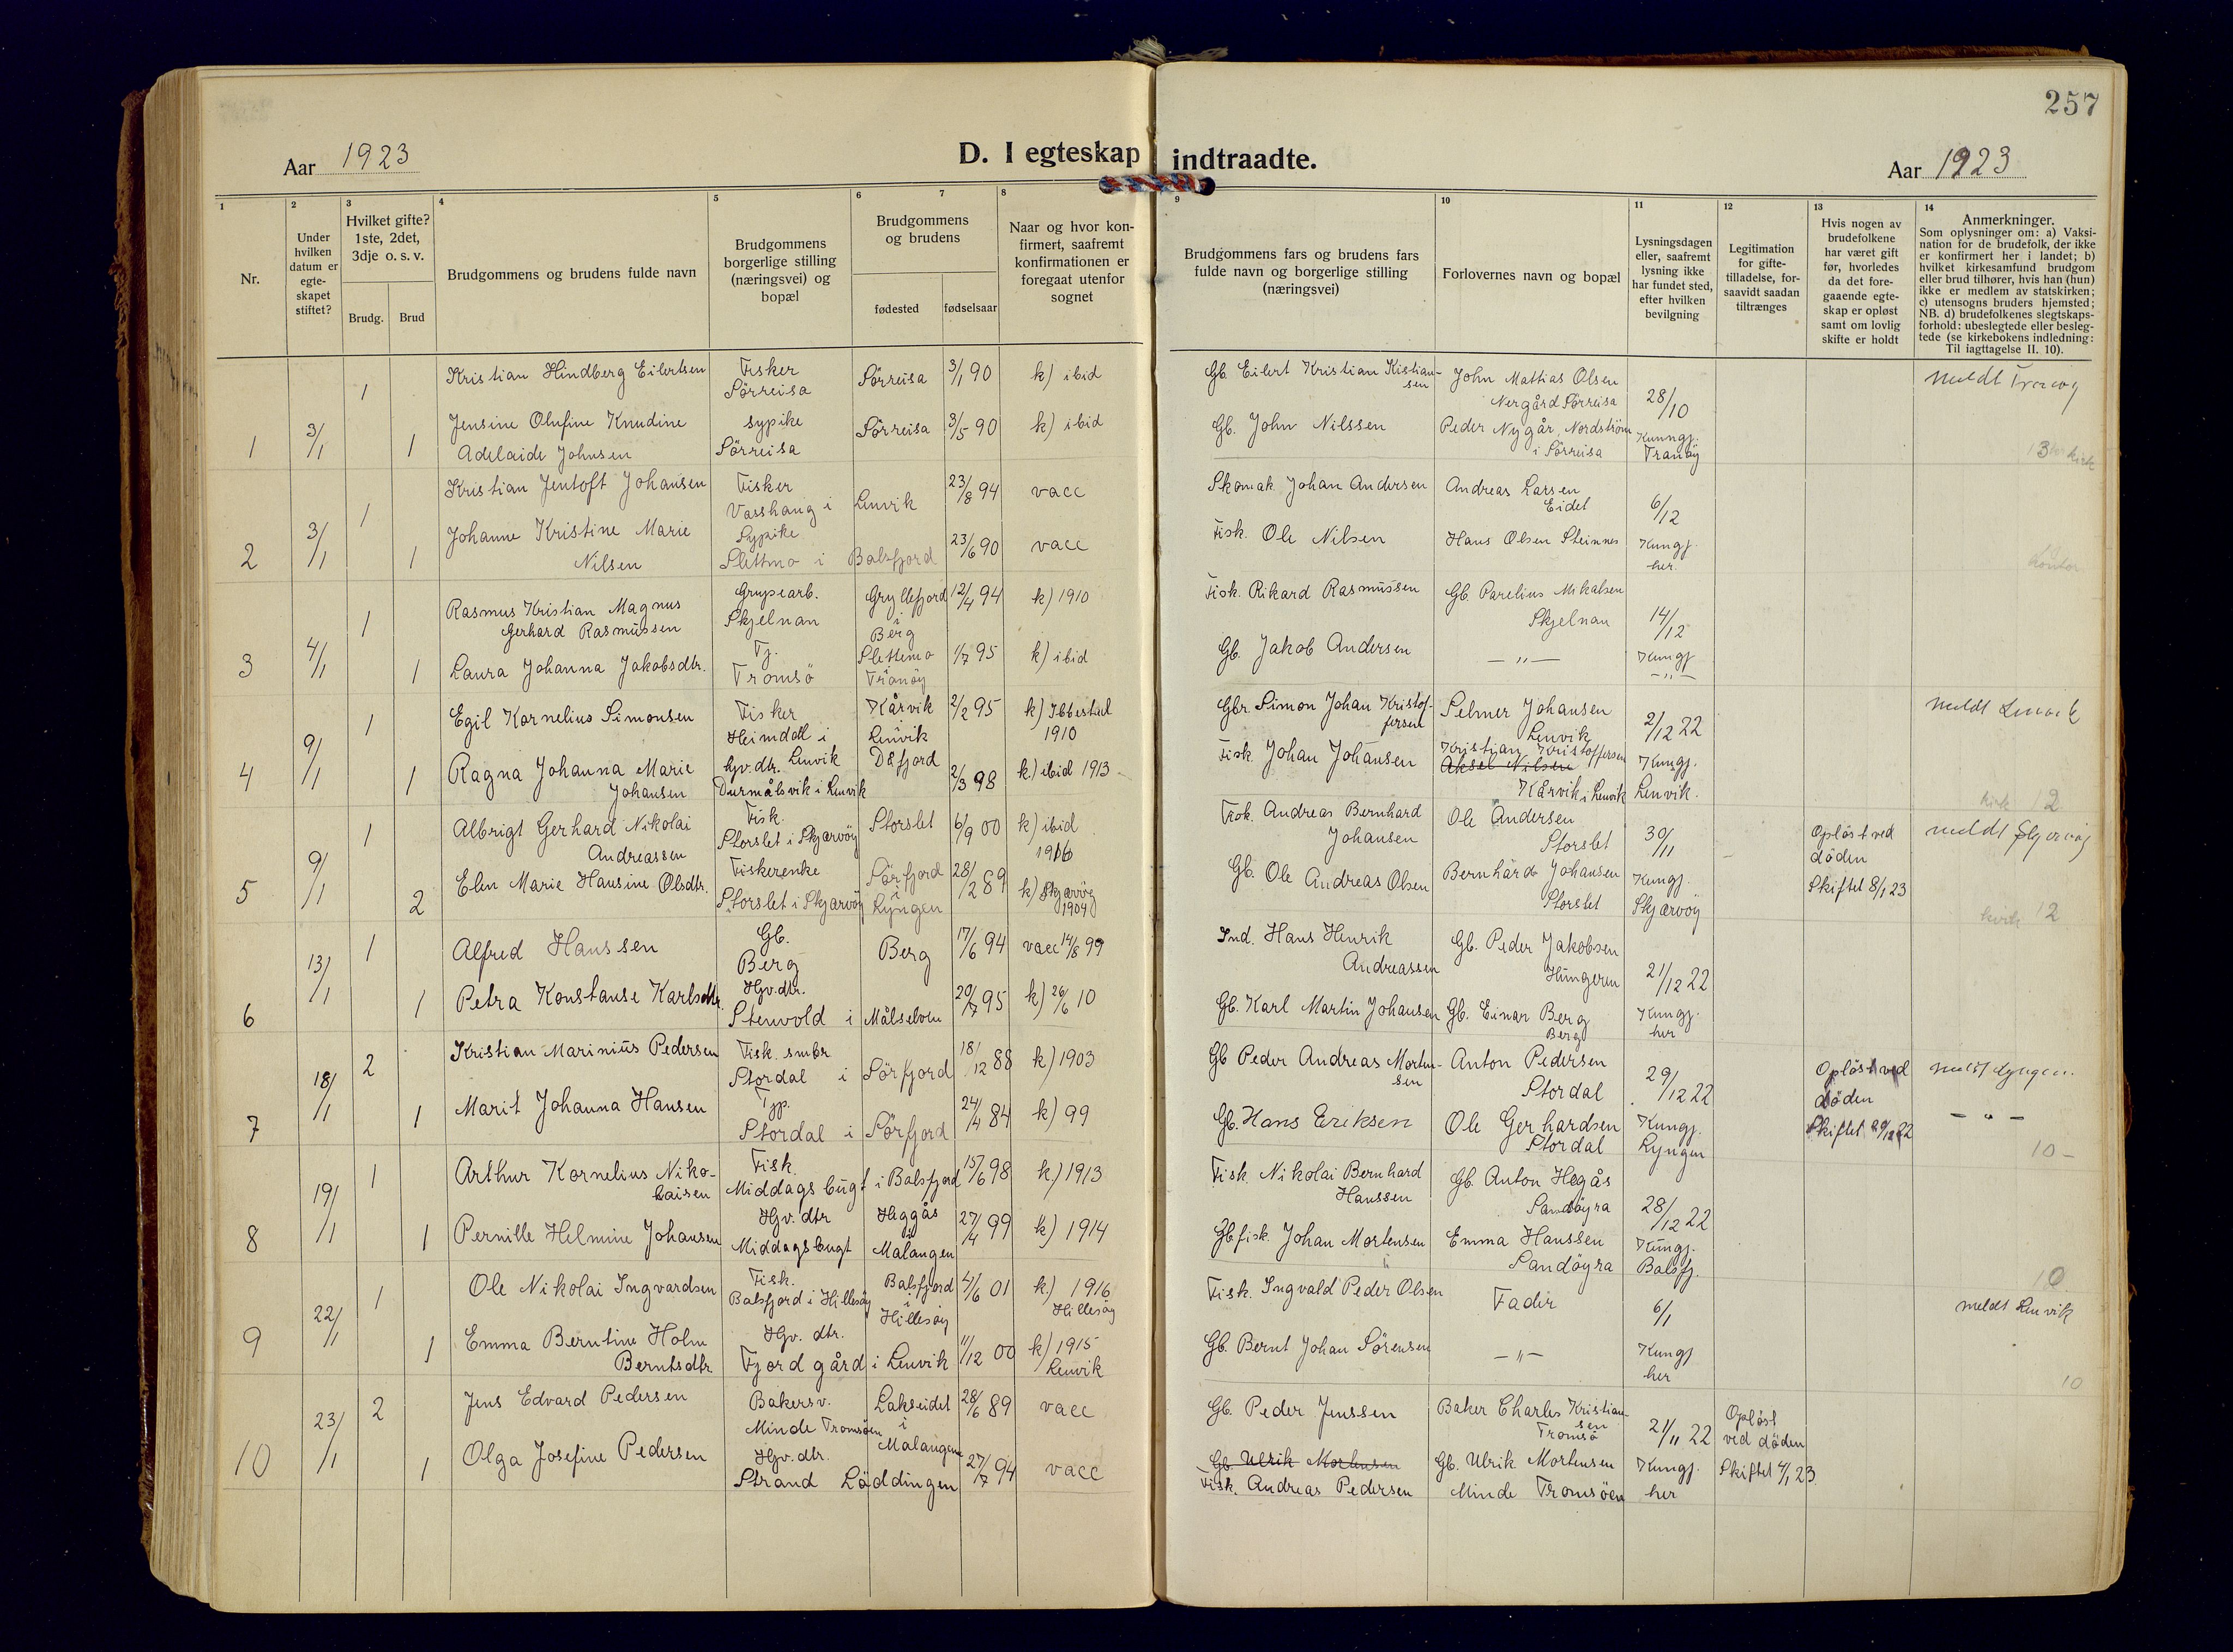 257
Aar 1923
D. I egteskap indtraadte.
Aar 1923
1
Nr.
2
Under
hvilken
datum er
egte-
skapet
stiftet?
3
Hvilket gifte?
1ste, 2det,
3dje o. s. v.
Brudg.
Brud
4
Brudgommens og brudens fulde navn
5
Brudgommens
borgerlige stilling
(næringsvei) og
bopæl
6
7
Brudgommens
og brudens
fødested
fødselsaar
8
Naar og hvor kon-
firmert, saafremt
konfirmationen er
foregaat utenfor
sognet
9
Brudgommens fars og brudens fars
fulde navn og borgerlige stilling
(næringsvei)
10
Forlovernes navn og bopæl
11
Lysningsdagen
eller, saafremt
lysning ikke
har fundet sted,
efter hvilken
bevilgning
12
Legitimation
for gifte-
tilladelse, for-
saavidt saadan
tiltrænges
13
Hvis nogen av
brudefolkene
har været gift
før, hvorledes
da det fore-
gaaende egte-
skap er opløst
samt om lovlig
skifte er holdt
14
Anmerkninger.
Som oplysninger om: a) Vaksi-
nation for de brudefolk, der ikke
er konfirmert her i landet; b)
hvilket kirkesamfund brudgom
eller brud tilhører, hvis han (hun)
ikke er medlem av statskirken;
c) utensogns bruders hjemsted;
NB. d) brudefolkenes slegtskaps-
forhold: ubeslegtede eller besleg-
tede (se kirkebokens indledning:
Til iagttagelse II. 10).
1
3/1
1
Kristian Hindberg Eilertsen
Fisker
Sörreisa
Sörreisa
3/1 90
k) ibid
Gb. Eilert Kristian Kistian-
sen
John Mathias Olsen
Nergård Sörreisa
28/10
meldt Tranöy
1
Jensine Olufine Knudine
Adelaide Johnsen
sypike
Sörreisa
Sörreisa
3/5 90
k) ibid
Gb. John Nilssen
Peder Nygår, Nordström
i Sörreisa
Kunngj.
Tranöy
13 kirk
2
3/1
1
Kristian Jentoft Johansen
Fisker
Vasshaug i
Lenvik
23/8 94
vacc
Skomak. Johan Andersen
Andreas Larsen
Eidet
6/12
1
Johanne Kristine Marie
Nilsen
Sypike
Slettmo i
Balsfjord
23/6 90
vacc
Fisk. Ole Nilsen
Hans Olsen Steinnes
Kungj.
her.
Kontor
3
4/1
1
Rasmus Kristian Magnus
Gerhard Rasmussen
Grupearb.
Skjelnan
Gryllefjord
i
Berg
12/4 94
k) 1910
Fisk. Rikard Rasmussen
Gb. Parelius Mikalsen
Skjelnan
14/12
1
Laura Johanna Jakobsdtr.
Tj.
Tromsö
Slettmo
i
Tranöy
1/7 95
k) ibid
Gb. Jakob Andersen
— „ —
Kungj
— „ —
4
9/1
1
Egil Kornelius Simonsen
Fisker
Heimdal i
Lenvik
Kårvik
i
Lenvik
2/2 95
k) Ibbestad
1910
Gbr. Simon Johan Kristof-
fersen
Selmer Johansen
Lenvik
2/12 22
meldt Lenvik
1
Ragna Johanna Marie
Johansen
hjv. dtr.
Durmålsvik i Lenvik
2/3 98
k) ibid 1913
Fisk. Johan Johansen
Kristian Kristoffersen
Aksel Nilsen
Kårvik i Lenvik
Kungj.
Lenvik.
kirk 12
5
9/1
1
Albrigt Gerhard Nikolai
Andreassen
Fisk.
Storslet i Skjærvöy
Storslet
6/9 00
k) ibid
1916
Fisk. Andreas Bernhard
Johansen
Ole Andersen
Storslet
30/11
Oplöst ved
döden
meldt Skjervöy
2
Elen Marie Hansine Olsdtr.
Fiskerenke
Storslet i Skjarvöy
Sörfjord
i
Lyngen
28/2 89
k) Skjærvöy
1904
Gb. Ole Andreas Olsen
Bernhard Johansen
Storslet
Kungj.
Skjærvöy
Skiftet 8/1 23
kirk 12
6
13/1
1
Alfred Hanssen
Gb.
Berg
Berg
17/6 94
vacc 14/8 99
Ind. Hans Henrik
Andreassen
Gb. Peder Jakobsen
Hungeren
21/12 22
1
Petra Konstanse Karlsdtr.
Hjv. dtr.
Stenvold i
Målselven
20/7 95
k) 26/6 10
Gb. Karl Martin Johansen
Gb. Einar Berg
Berg
Kungj.
her
7
18/1
2
Kristian Marinius Pedersen
Fisk. smbr
Stordal i
Sörfjord
18/12 88
k) 1903
Gb Peder Andreas Morten-
sen
Anton Pedersen
Stordal
29/12 22
Oplöst ved
döden
meldt Lyngen.
1
Marit Johanna Hansen
Stordal i
Sörfjord
24/4 84
k) 99
Gb. Hans Eriksen
Ole Gerhardsen
Stordal
Kungj.
Lyngen
Skiftet 29/12 22
— „ —
10 -
8
19/1
1
Arthur Kornelius Niko-
laisen
Fisk.
Middagsbugt i Balsfjord
15/6 98
k) 1913
Fisk. Nikolai Bernhard
Hanssen
Gb. Anton Hegås
Sandöyra
28/12 22
1
Pernille Helmine Johansen
Hjv. dtr
Middagsbugt
Heggås
i
Malangen
27/4 99
k) 1914
Gb. fisk. Johan Mortensen
Emma Hanssen
Sandöyra
Kungj.
Balsfj.
10
9
22/1
1
Ole Nikolai Ingvardsen
Fisk.
Balsfjord i Hillesöy
Balsfjord
i
Hillesöy
4/6 01
k) 1916
Hillesöy
Fisk. Ingvald Peder Olsen
Fadir
6/1
meldt Lenvik
1
Emma Berntine Holm
Berntsdtr.
Hjv. dtr.
Fjordgård i Lenvik
11/12 00
k) 1915
Lenvik
Gb. Bernt Johan Sörensen
— „ —
Kungj
her
10
10
23/1
2
Jens Edvard Pedersen
Bakersv.
Minde Tromsöen
Lakseidet
i
Malangen
28/6 89
vacc
Gb. Peder Jenssen
Baker Charles Kristian-
sen
Tromsö
21/11 22
Oplöst
ved döden
1
Olga Josefine Pedersen
Hjv. dtr.
Strand Löddingen
27/7 94
vacc
Gb. Ulrik Mortensen
Fisk. Andreas Pedersen
Gb. Ulrik Mortensen
Minde Tromsöen
Kungj.
her
Skiftet 4/1 23